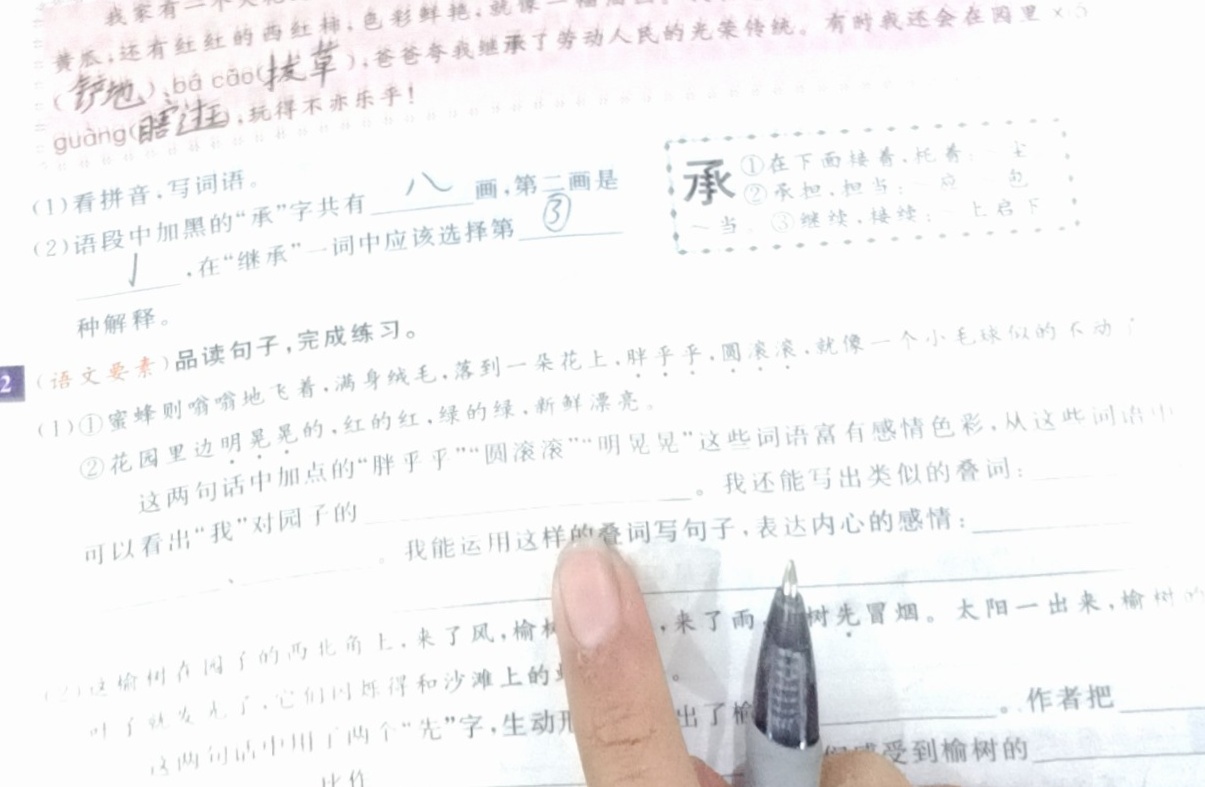 我家有一个大
黄瓜,还有红红的西红柿,色彩鲜艳,就像一幅
(铲地)、bá cǎo(拔草),爸爸夸我继承了劳动人民的光荣传统。有时我还会在园里 x
guàng(瞎逛),玩得不亦乐乎!
(1)看拼音,写词语。
(2)语段中加黑的“承”字共有 八 画,第二画是
亅,在“继承”一词中应该选择第 ③
种解释。
承 ①在下面接着,托着:~尘
②承担,担当:~应 ~包
~当。③继续,接续:~上启下
2 (语文要素)品读句子,完成练习。
(1)①蜜蜂则嗡嗡地飞着,满身绒毛,落到一朵花上,胖乎乎,圆滚滚,就像一个小毛球似的不动了
②花园里边明晃晃的,红的红,绿的绿,新鲜漂亮。
这两句话中加点的“胖乎乎”“圆滚滚”“明晃晃”这些词语富有感情色彩,从这些词语中
可以看出“我”对园子的。我还能写出类似的叠词:
、。我能运用这样的叠词写句子,表达内心的感情:
(2)这榆树在园子的西北角上,来了风,榆树,来了雨,树先冒烟。太阳一出来,榆树的
叶子就发光了,它们闪烁得和沙滩上的。
这两句话中用了两个“先”字,生动形出了榆。作者把
比作 们感受到榆树的